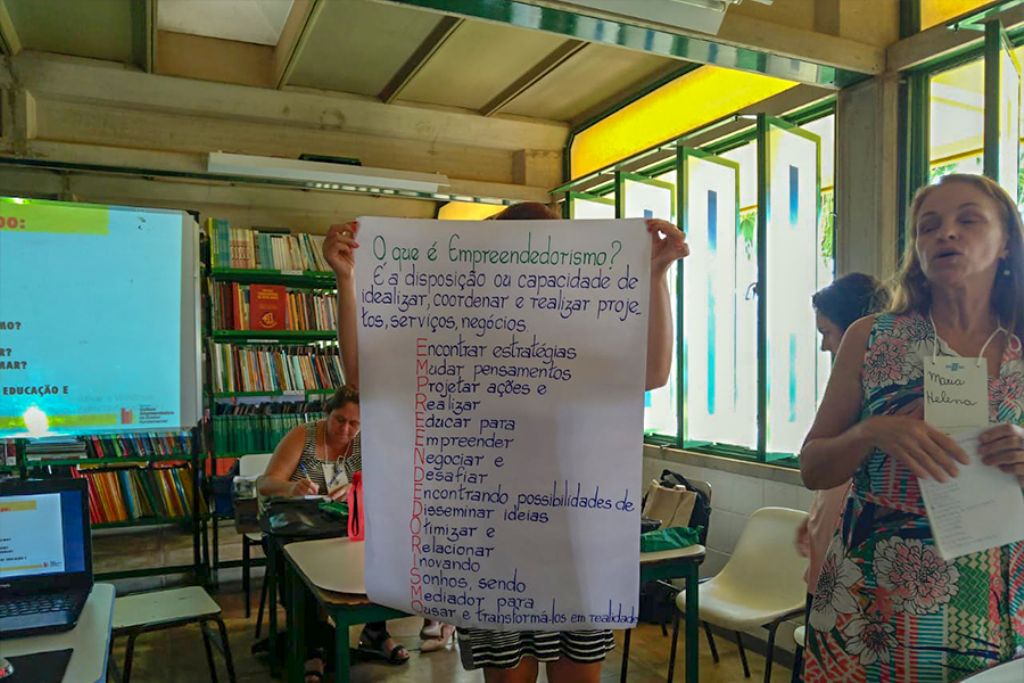 O que é Empreendedorismo?
É a disposição ou capacidade de
idealizar, coordenar e realizar proje-
tos, serviços, negócios.
Encontrar estratégias
Mudar pensamentos
Projetar ações e
Realizar
Educar para
Empreender
Negociar e
Desafiar
Encontrando possibilidades de
Disseminar ideias
Otimizar e
Relacionar
Inovando
Sonhos, sendo
Mediador para
Ousar e transformá-los em realidade
DO:
MO?
R?
MAR?
EDUCAÇÃO E
Maria
Helena